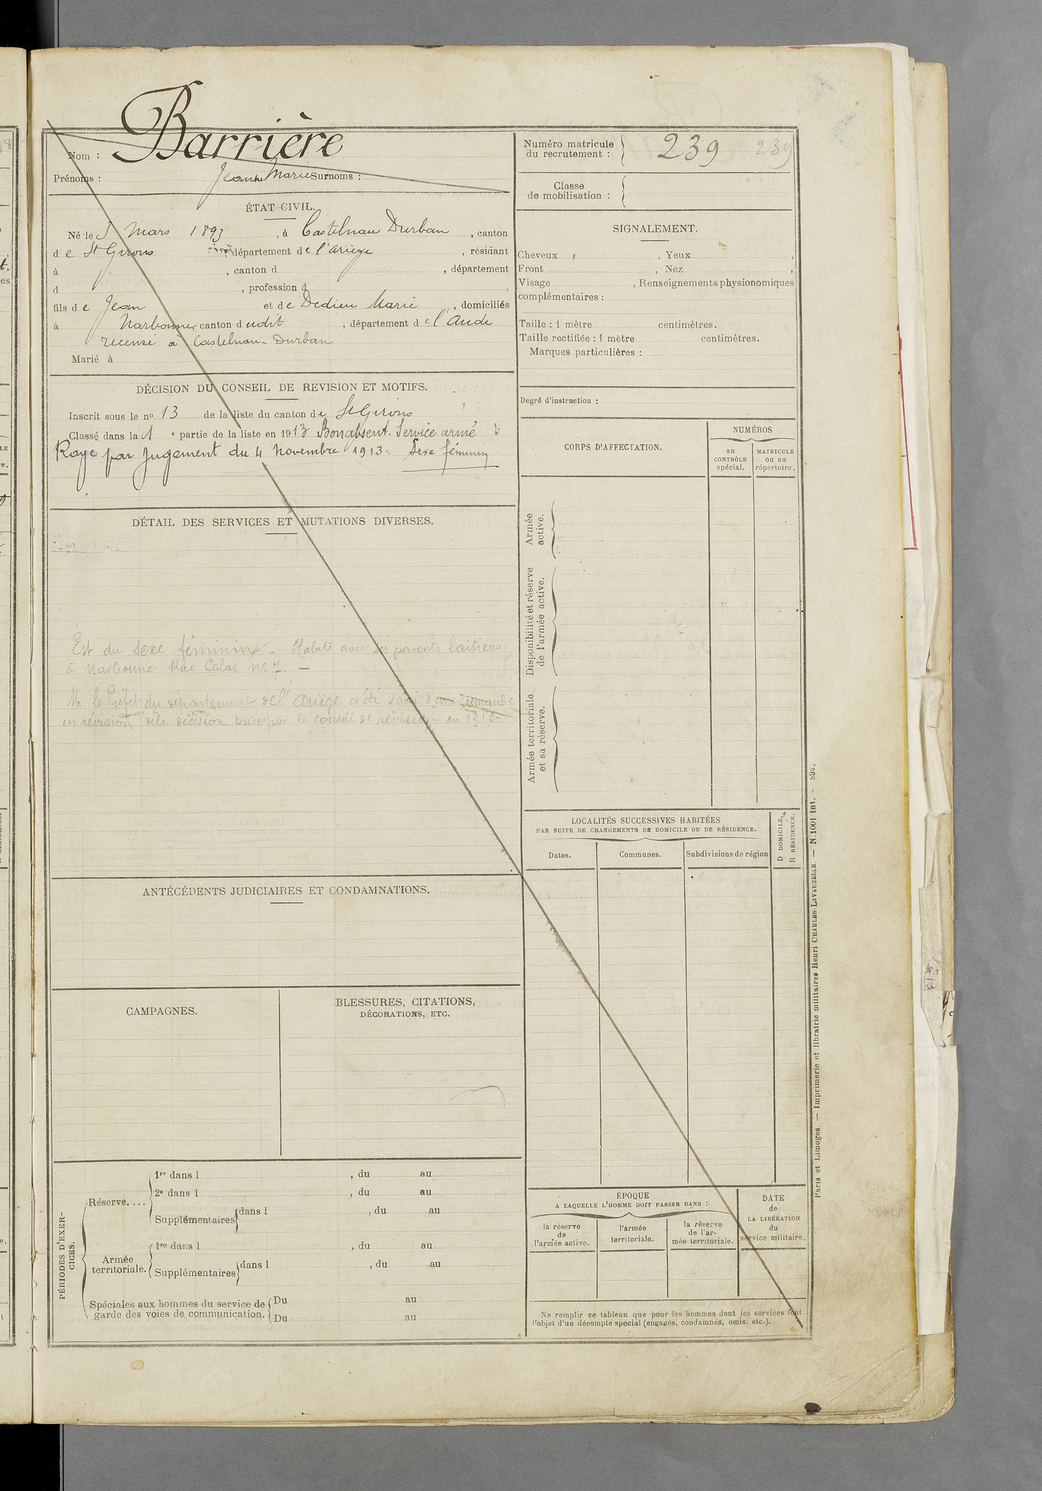 Barrière
Nom :
Prénoms : Jeanne Marie Surnoms :
ÉTAT CIVIL.
Né le 5 Mars 1893, à Castelnau Durban, canton
de St Girons département de l'Ariège, résidant
à , canton d , département
d , profession d
fils de Jean et de Dedieu Marie, domiciliés
à Narbonne, canton dudit, département de l'Aude
recensé à Castelnau Durban
Marié à
DÉCISION DU CONSEIL DE REVISION ET MOTIFS.
Inscrit sous le no 13 de la liste du canton de St Girons
Classé dans la 1 e partie de la liste en 1913 Bon absent. Service armé
Rayé par jugement du 4 Novembre 1913. Sexe féminin
DÉTAIL DES SERVICES ET MUTATIONS DIVERSES.
Est du sexe féminin. Habite avec ses parents laitiers
à Narbonne Rue Calas no 7. —
M. le Préfet du département de l'Ariège a été saisi d'une demande
en révision de la décision prise par le conseil de révision en 1913.
ANTÉCÉDENTS JUDICIAIRES ET CONDAMNATIONS.
CAMPAGNES.
BLESSURES, CITATIONS,
DÉCORATIONS, ETC.
PÉRIODES D'EXER-
CICES.
Réserve....
1re dans l , du au
2e dans l , du au
Supplémentaires dans l , du au
Armée
territoriale.
1re dans l , du au
Supplémentaires dans l , du au
Spéciales aux hommes du service de
garde des voies de communication.
Du au
Du au
Numéro matricule
du recrutement :
239 239
Classe
de mobilisation :
SIGNALEMENT.
Cheveux , Yeux ,
Front , Nez ,
Visage , Renseignements physionomiques
complémentaires :
Taille : 1 mètre centimètres.
Taille rectifiée : 1 mètre centimètres.
Marques particulières :
Degré d'instruction :
CORPS D'AFFECTATION.
NUMÉROS
au
CONTRÔLE
spécial.
MATRICULE
ou au
répertoire.
Armée
active.
Disponibilité et réserve
de l'armée active.
Armée territoriale
et sa réserve.
LOCALITÉS SUCCESSIVES HABITÉES
PAR SUITE DE CHANGEMENTS DE DOMICILE OU DE RÉSIDENCE.
Dates.
Communes.
Subdivisions de région
D DOMICILE.
R RÉSIDENCE.
ÉPOQUE
A LAQUELLE L'HOMME DOIT PASSER DANS :
la réserve
de
l'armée active.
l'armée
territoriale.
la réserve
de l'ar-
mée territoriale.
DATE
de
LA LIBÉRATION
du
service militaire.
Ne remplir ce tableau que pour les hommes dont les services font
l'objet d'un décompte spécial (engagés, condamnés, omis, etc.).
Paris et Limoges. — Imprimerie et librairie militaires Henri CHARLES-LAVAUZELLE. — N. 1001 Int. -